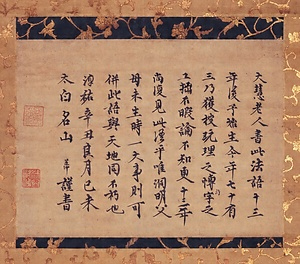 大慧老人書此法語十三
年後予始生今年七十有
三乃獲披玩理之博字之
工拙不暇論不知更十三年
尚復見此漢乎唯洞明父
母未生時一大事則可
併此語與天地同不朽也
淳祐辛丑良月己未
太白名山 謹書